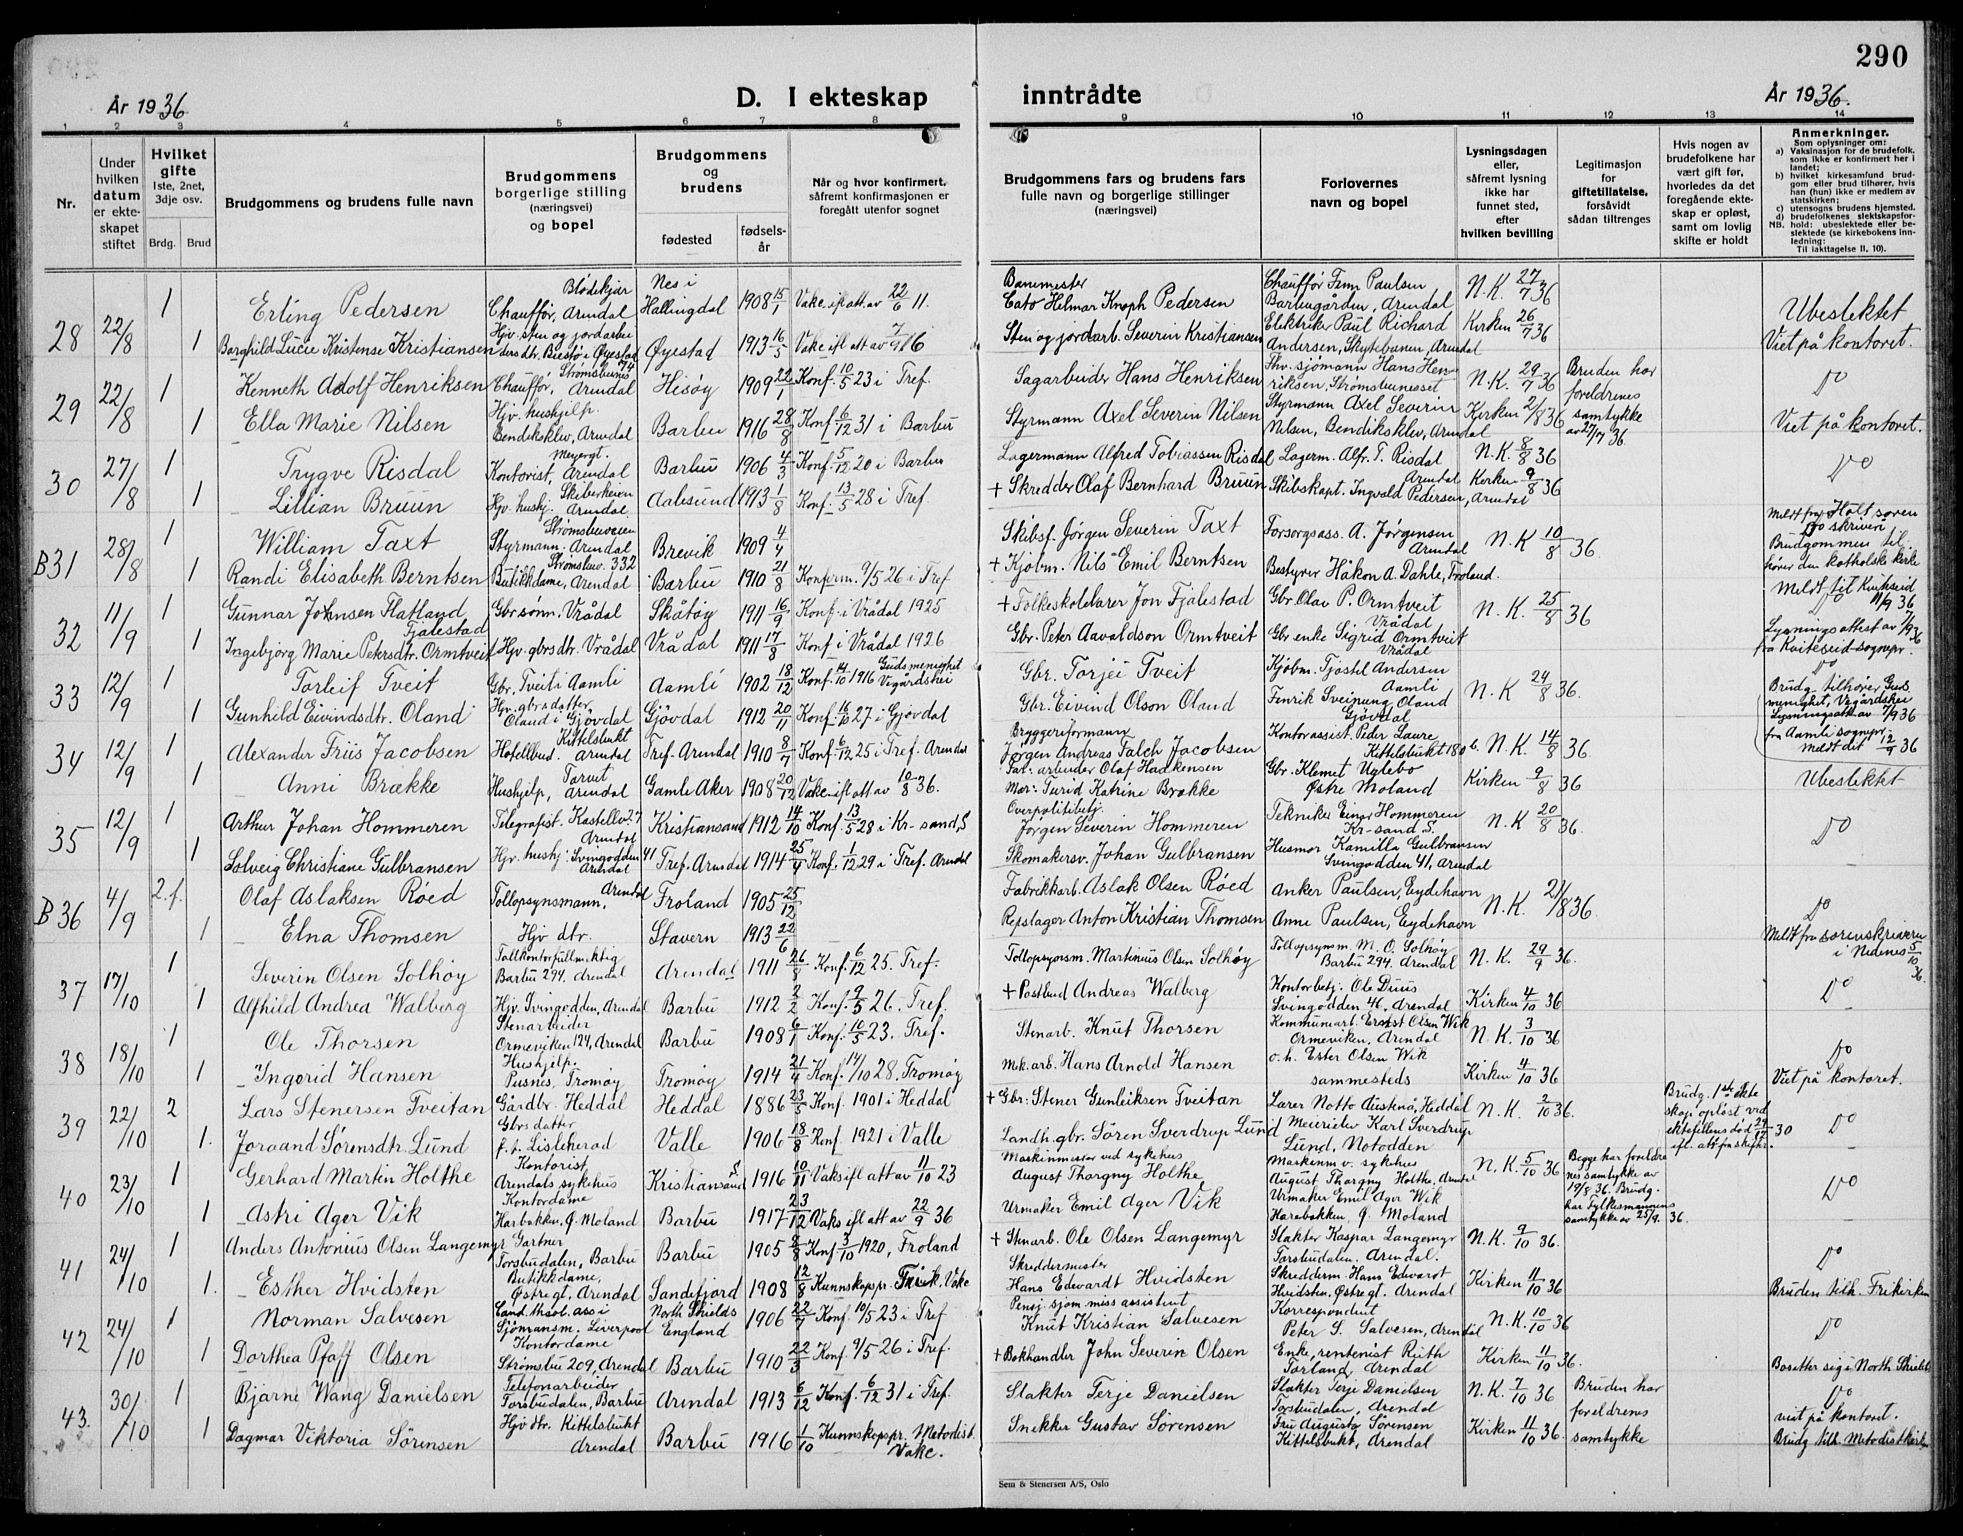 290
År 1936. D. I ekteskap inntrådte År 1936.
1 2 3 4 5 6 7 8 9 10 11 12 13 14
Nr.
Under hvilken datum er ekteskapet stiftet
Hvilket gifte
1ste, 2net, 3dje osv.
Brdg. Brud
Brudgommens og brudens fulle navn
Brudgommens borgerlige stilling (næringsvei) og bopel
Brudgommens og brudens
fødested
fødselsår
Når og hvor konfirmert, såfremt konfirmasjonen er foregått utenfor sognet
Brudgommens fars og brudens fars fulle navn og borgerlige stillinger (næringsvei)
Forlovernes navn og bopel
Lysningsdagen eller, såfremt lysning ikke har funnet sted, efter hvilken bevilling
Legitimasjon for giftetillatelse, forsåvidt sådan tiltrenges
Hvis nogen av brudefolkene har vært gift før, hvorledes da det foregående ekteskap er opløst, samt om lovlig skifte er holdt
Anmerkninger.
Som oplysninger om:
a) Vaksinasjon for de brudefolk, som ikke er konfirmert her i landet;
b) hvilket kirkesamfund brudgom eller brud tilhører, hvis han (hun) ikke er medlem av statskirken;
c) utensogns brudens hjemsted.
d) brudefolkenes slektskapsforhold: ubeslektede eller beslektede (se kirkebokens innledning:
NB. Til iakttagelse II, 10).
28 22/8 1 Erling Pedersen Chauffør, Blødekjær Arendal Nes i Hallingdal 1908 15/1 Vaks. ifl att. av 22/6 11. Banemester Cato Helmar Knoph Pedersen Chauffør Finn Paulsen Barbugården, Arendal N.K. 27/7 36 Ubeslektet
1 Borghild Lucie Kristense Kristiansen Hjv. sten og jordarbeiders dtr. Biestø i Øyestad Øyestad 1913 16/5 Sten og jordarb. Severin Kristiansen Elektriker Paul Richard Andersen, Skytebanen, Arendal Kirken 26/7 36 Viet på kontoret.
29 22/8 1 Kenneth Adolf Henriksen Chauffør, Strømsbunes 74 Arendal Hisøy 1909 22/1 Konf. 10/5 23 i Tref. Sagarbeider Hans Henriksen Fhv. sjømann Hans Henriksen, Strømsbunesset N.K. 29/7 36 Bruden har foreldrenes samtykke av 27/7 36 Do
1 Ella Marie Nilsen Hjv. hushjelp. Bendiksklev, Arendal Barbu 1916 28/8 Konf. 6/12 31 i Barbu Styrmann Axel Severin Nilsen Styrmann Axel Severin Nilsen, Bendiksklev, Arendal Kirken 2/8 36 Viet på kontoret.
30 27/8 1 Trygve Risdal Kontorist, Arendal Barbu 1906 4/3 Konf. 5/12 20 i Barbu Lagermann Alfred Tobiassen Risdal Lagerm. Alfr. T. Risdal Arendal N.K. 8/8 36 Do
1 Lillian Bruun Hjv. hushj. Skiberheien Arendal Aalesund 1913 1/8 Konf. 13/5 28 i Tref. + Skredder Olaf Bernhard Bruun Skibskapt. Ingvald Pedersen, Arendal Kirken 9/8 36
B31 28/8 1 William Taxt Styrmann. Strømsbuveien Arendal Brevik 1909 4/4 Skibsf. Jörgen Severin Taxt Forsorgsass. A. Jørgensen Arendal N.K 10/8 36. Meldt fra Holt sorenskriveri Do Brudgommen tilhører den katholske kirke
1 Randi Elisabeth Berntsen Butikkdame, Strømsbuv. 332 Arendal Barbu 1910 21/8 Konferm. 9/5 26 i Tref + Kjøbm. Nils Emil Berntsen Bestyrer Håkon A. Dahle, Froland.
32 11/9 1 Gunnar Johnsen Flatland Fjalestad Gbr sønn, Vrådal Skåtøy 1911 16/9 Konf. i Vrådal 1925 + Folkeskolelærer Jon Fjalestad Gbr. Olav P. Ormtveit Vrådal N.K. 25/8 36 Meldt til Kviteseid 11/9 36 Do
1 Ingebjørg Marie Petersdtr. Ormtveit Hjv. gbrs dtr. Vrådal Vrådal 1911 17/8 Konf i Vrådal 1926 Gbr. Peter Aavaldson Ormtveit Gbr enke Sigrid Ormtveit Vrådal Lysningsattest av 7/9 36 fra Kviteseid sognepr.
33 12/9 1 Torleif Tveit Gbr. Tveit i Aamli Aamli 1902 18/12 Konf. 14/10 1916 Guds menighet Vegårdshei Gbr. Torjei Tveit Kjøbm. Tjostel Andersen Aamli N.K 24/8 36. Do Brudg. tilhører Guds menighet, Vegårdshei
1 Gunhild Eivindsdtr. Oland Hjv. gbrs datter Oland i Gjövdal Gjövdal 1912 20/11 Konf. 16/10 27 i Gjövdal Gbr. Eivind Olson Oland Fenrik Sveinung Oland Gjövdal Lysningsatt. av 7/9 36 fra Aamli sognepr meldt dit 12/9 36
34 12/9 1 Alexander Friis Jacobsen Hotellbud. Kittelsbukt Arendal Tref. Arendal 1910 8/7 Konf. 6/12 25 i Tref. Arendal Bryggeriformann Jørgen Andreas Falch Jacobsen Kontorassist. Peder Laure Kittelsbukt 180 b. N.K. 14/8 36
1 Anni Brække Hushjelp, Arendal Gamle Aker 1908 20/12 Vaks. ifl att. av 10/8 36. Far: arbeider Olaf Haakensen Mor: Turid Katrine Brække Gbr. Klemet Uglebo Østre Moland Kirken 9/8 36 Ubeslektet
35 12/9 1 Arthur Johan Hommeren Telegrafist. Kastellv. 7 Arendal Kristiansand 1912 14/10 Konf. 13/5 28 i Kr-sand, S Overpolitibetj. Jørgen Severin Hommeren Tekniker Einar Hommeren Kr-sand S. N.K 20/8 36. Do
1 Solveig Christiane Gulbransen Hjv. hushj. Svingodden 41 Arendal Tref. Arendal 1914 25/4 Konf. 1/12 29 i Tref. Arendal Skomakersv. Johan Gulbransen Husmor Kamilla Gulbransen Svingodden 41, Arendal
B 36 4/9 2.f. Olaf Aslaksen Røed Tollopsynsmann, Arendal Froland 1905 25/12 Fabrikkarb. Aslak Olsen Røed Anker Paulsen, Eydehavn N.K. 21/8 36. Do
1 Elna Thomsen Hjv dtr. Stavern 1913 22/6 Repslager Anton Kristian Thomsen Anne Paulsen, Eydehavn Meldt fra sorenskriveren i Nedenes 5/10 36
37 17/10 1 Severin Olsen Solhöy Tollkontorfullmektig Barbu 294. Arendal Arendal 1911 26/8 Konf. 6/12 25. Tref. Tollopsynsm. Martinius Olsen Solhöy Tollopsynsm. M. O. Solhöy Barbu 294. Arendal N.K. 29/9 36.
1 Alfhild Andrea Walberg Hjv. Svingodden, Arendal Barbu 1912 2/2 Konf. 9/5 26. Tref. + Postbud Andreas Walberg Kontorbetj. Ole Duus Svingodden 46, Arendal Kirken 4/10 36 Do
38 18/10 1 Ole Thorsen Stenarbeider Ormeviken 124, Arendal Barbu 1908 6/1 Konf. 10/5 23. Tref. Stenarb. Knut Thorsen Kommunearb. Ernst Olsen Wik Ormeviken, Arendal N.K. 3/10 36
1 Ingerid Hansen Hushjelp. Pusnes, Tromøy Tromøy 1914 21/4 Konf. 14/10 28, Tromøy Mek. arb. Hans Arnold Hansen o.h. Ester Olsen Wik sammesteds Kirken 4/10 36 Do Viet på kontoret.
39 22/10 2 Lars Stenersen Tveitan Gårdbr. Heddal Heddal 1886 23/5 Konf. 1901 i Heddal + Gbr. Stener Gunleiksen Tveitan Lærer Notto Austenå, Heddal N.K. 2/10 36. Brudg. 1ste ekteskap opløst ved ektefellens død 30 ifl. att fra skifter. Do
1. Joraand Sørensdtr. Lund Gbrs datter f.t. Lislekerad Valle 1906 18/8 Konf. 1921 i Valle Landh. gbr. Sören Sverdrup Lund Meierielev Karl Sverdrup Lund, Notodden
40 23/10 1 Gerhard Martin Holthe Kontorist, Arendals sykehus Kristiansand S 1916 10/11 Vaks ifl att av 11/10 23 Maskinmester ved sykehus August Thargny Holthe Maskinm v. sykehus August Thargny Holthe, Arendal N.K. 5/10 36 Begge har foreldrenes samtykke av 19/8 36. Brudg. har Fylkesmannens samtykke av 25/9. 36. Do
1 Astri Ager Vik Kontordame Harbakken, Ø. Moland Barbu 1917 23/12 Vaks ifl att av 22/9 36 Urmaker Emil Ager Vik Urmaker Emil Ager Wik Harebakken, Ø. Moland
41 24/10 1 Anders Antonius Olsen Langemyr Gartner Torsbudalen, Barbu Barbu 1905 8/8 Konf 3/10 1920, Froland + Stenarb. Ole Olsen Langemyr Slakter Kaspar Langemyr Torsbudalen. Arendal. N.K. 9/10 36. Do
1. Esther Hvidsten Butikkdame, Østregt, Arendal Sandefjord 1908 12/8 Kunnskapspr. Frik. Vake Skreddermester Hans Edwardt Hvidsten Skredderm Hans Edwardt Hvidsten, Østregt. Arendal Kirken 11/10 36 Bruden tilh. Frikirken
42 24/10 1 Norman Salvesen Cand. theol. ass i Sjømansm. Liverpool North Shields England 1906 22/7 Konf. 10/5 23 i Tref Pensj. sjøm miss assistent Knut Kristian Salvesen Korrespondent Peter S. Salvesen, Arendal N.K. 10/10 36 Do
1 Dorthea Pfaff Olsen Kontordame Strømsbu 209, Arendal Barbu 1910 22/3 Konf. 9/5 26 i Tref. + Bokhandler John Severin Olsen Enke, rentenist Ruth Torland, Arendal Kirken 11/10 36. Bosetter sig i North Shields
43. 30/10 1 Bjarne Wang Danielsen Telefonarbeider Torsbudalen, Barbu Arendal 1913 6/12 Konf. 6/12 31 i Tref. Slakter Terje Danielsen Slakter Terje Danielsen Torsbudalen, Arendal N.K. 7/10 36 Bruden har foreldrenes samtykke Do viet på kontoret.
1 Dagmar Viktoria Sörensen Hjv dtr. Kittelsbukt Arendal Barbu 1916 1/10 Kunnskapspr. Metodist. Vake. Snekker Gustav Sörensen Fru Augusta Sörensen Kittelsbukt, Arendal Kirken 11/10 36. Brudg tilh. Metodistkirken
Sem & Stenersen A/S, Oslo